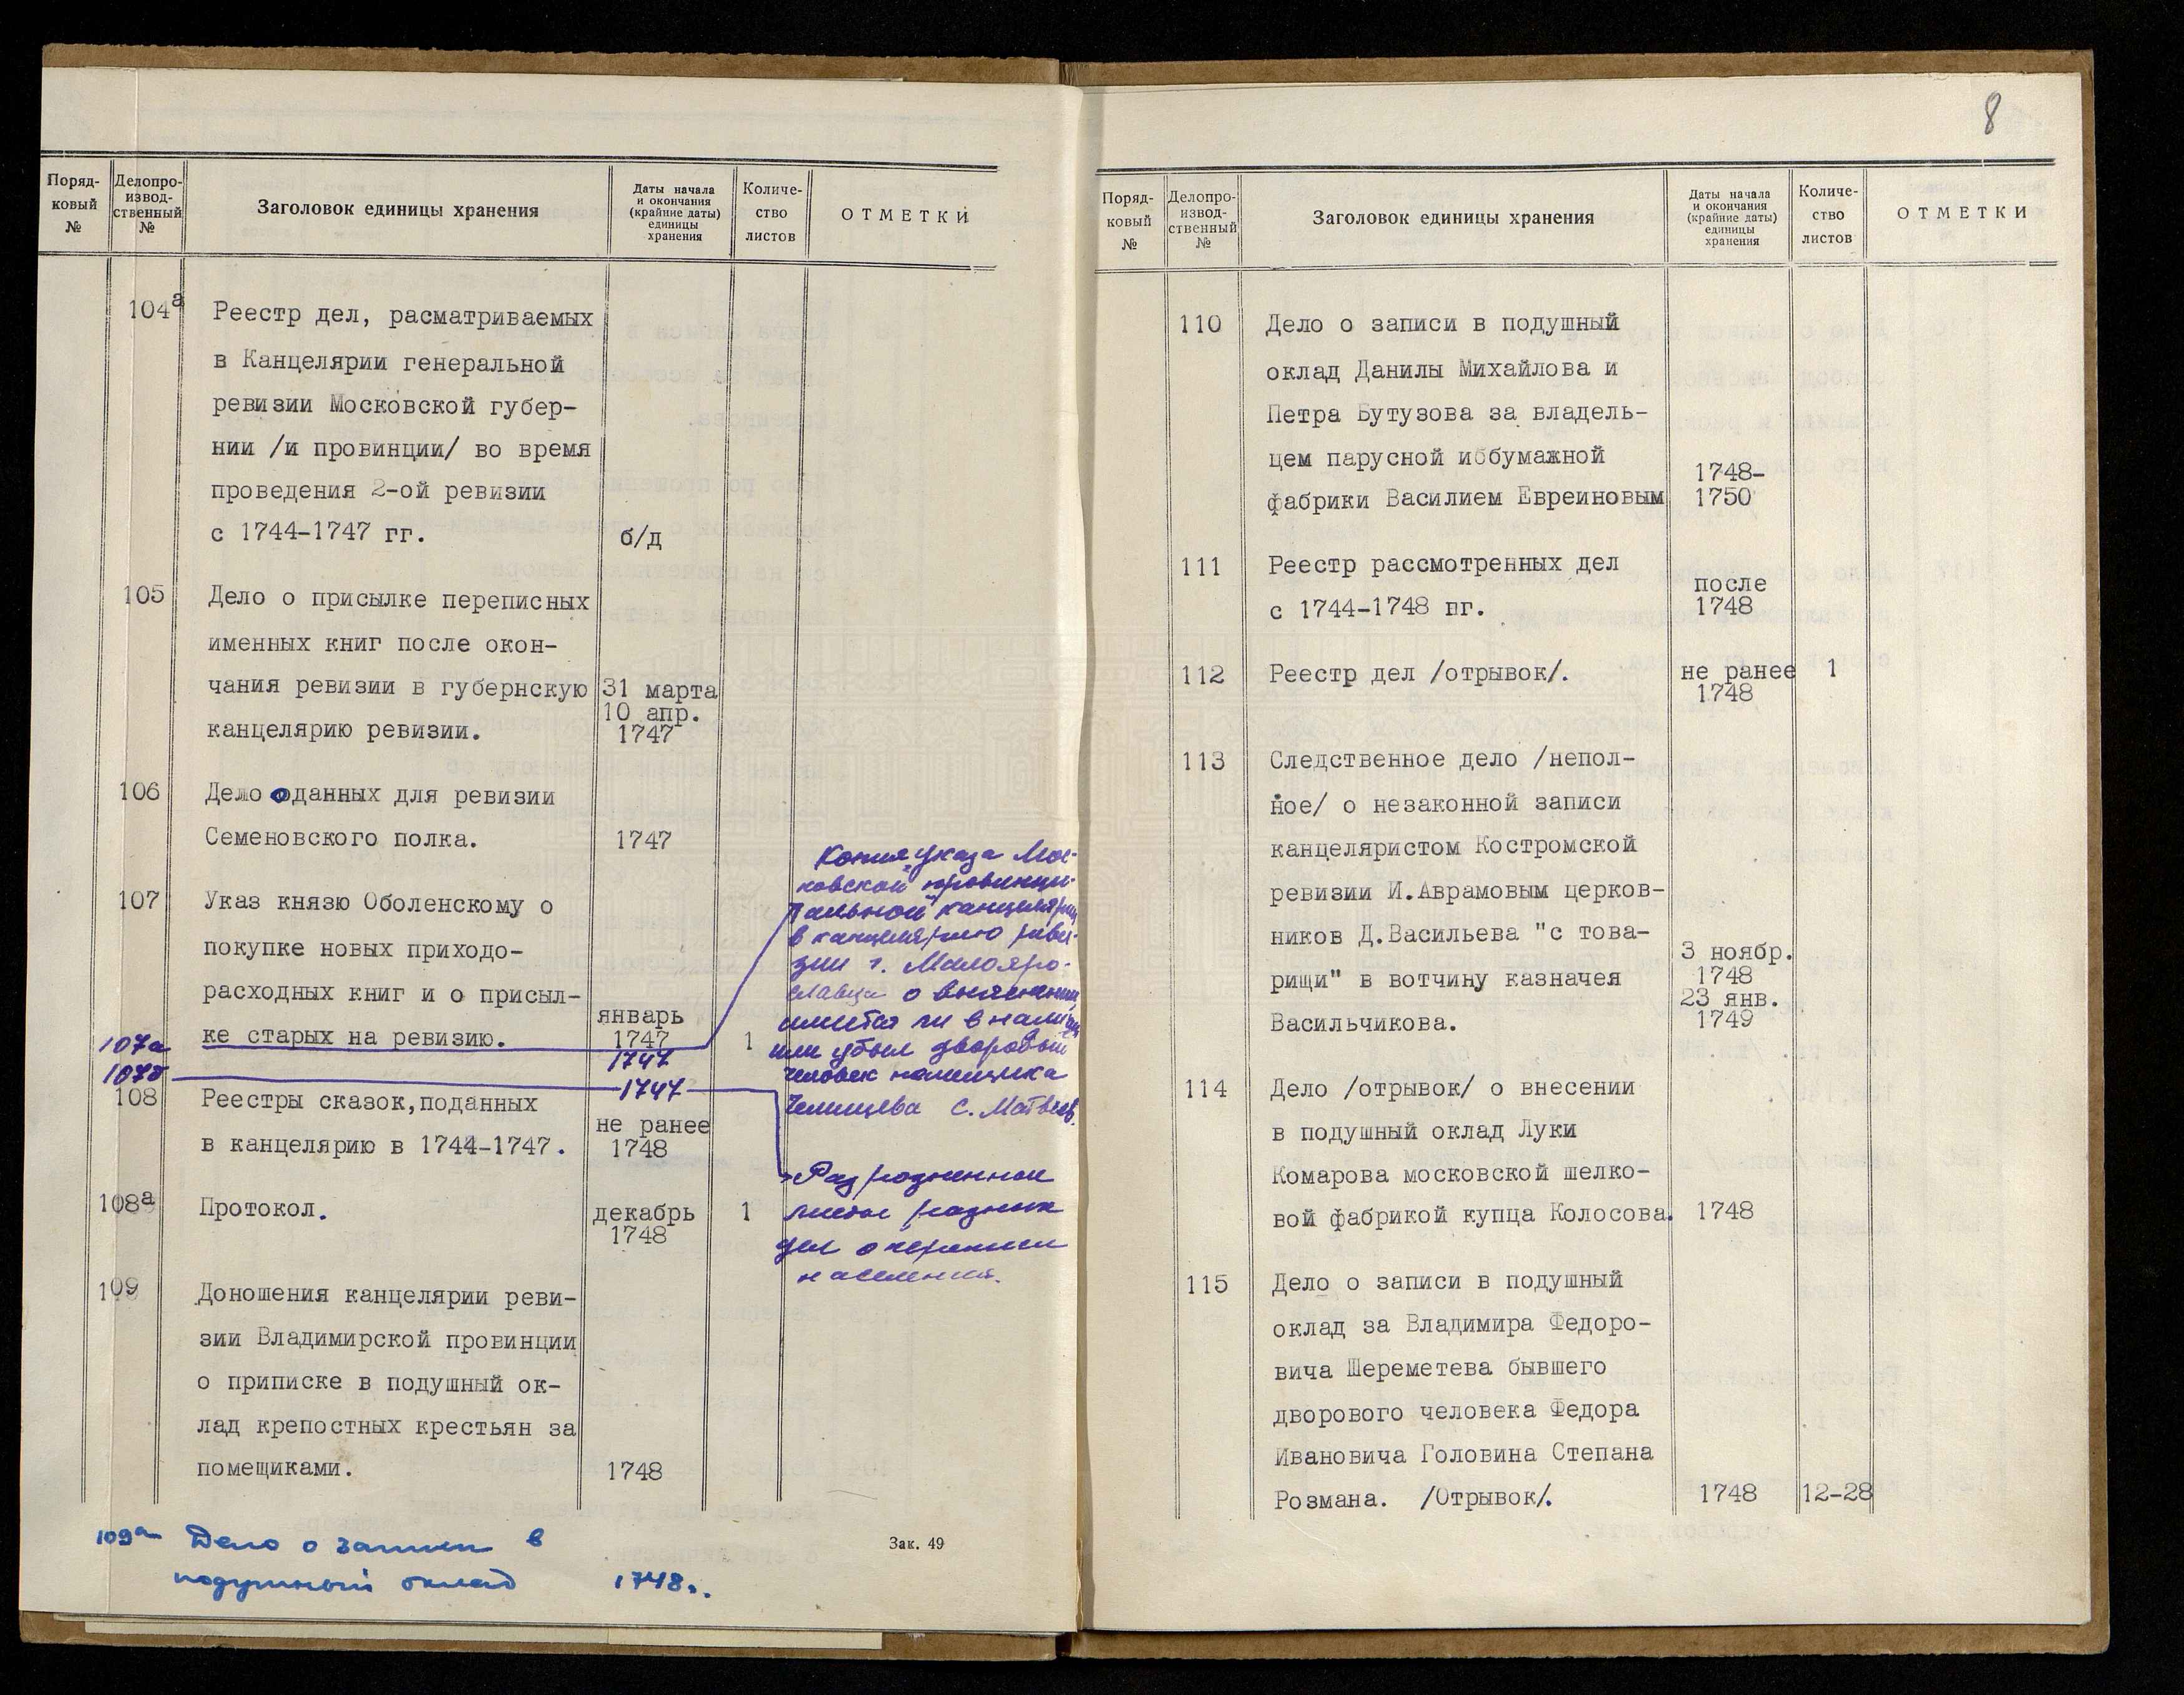 Поряд-
ковый
№
Делопро-
извод-
ственный
№
Заголовок единицы хранения
Даты начала
и окончания
(крайние даты)
единицы
хранения
Количе-
ство
листов
ОТМЕТКИ
104а Реестр дел, расматриваемых
в Канцелярии генеральной
ревизии Московской губер-
нии /и провинции/ во время
проведения 2-ой ревизии
с 1744-1747 гг. б/д
105 Дело о присылке переписных
именных книг после окон-
чания ревизии в губернскую 31 марта
10 апр.
канцелярию ревизии. 1747
106 Дело о данных для ревизии
Семеновского полка. 1747
107 Указ князю Оболенскому о
покупке новых приходо-
расходных книг и о присыл-
январь
ке старых на ревизию. 1747 1
107а 1747
Копия указа Мос-
ковской провинци-
альной канцелярии
в канцелярию реви-
зии г. Малояро-
славца о выяснении,
имеется ли в наличии
или убыл дворовый
человек помещика
Челищева С. Матвеев.
107б 1747
Разрозненные
листы разных
дел о переписи
населения.
108 Реестры сказок,поданных
не ранее
в канцелярию в 1744-1747. 1748
108а Протокол. декабрь 1
1748
109 Доношения канцелярии реви-
зии Владимирской провинции
о приписке в подушный ок-
лад крепостных крестьян за
помещиками. 1748
109а Дело о записи в
подушный оклад 1748г.
Зак. 49
8
Поряд-
ковый
№
Делопро-
извод-
ственный
№
Заголовок единицы хранения
Даты начала
и окончания
(крайние даты)
единицы
хранения
Количе-
ство
листов
ОТМЕТКИ
110 Дело о записи в подушный
оклад Данилы Михайлова и
Петра Бутузова за владель-
цем парусной иббумажной 1748-
фабрики Василием Евреиновым 1750
111 Реестр рассмотренных дел
после
с 1744-1748 гг. 1748
112 Реестр дел /отрывок/. не ранее 1
1748
113 Следственное дело /непол-
ное/ о незаконной записи
канцеляристом Костромской
ревизии И.Аврамовым церков-
ников Д.Васильева "с това-
3 ноябр.
рищи" в вотчину казначея 1748
23 янв.
Васильчикова. 1749
114 Дело /отрывок/ о внесении
в подушный оклад Луки
Комарова московской шелко-
вой фабрикой купца Колосова. 1748
115 Дело о записи в подушный
оклад за Владимира Федоро-
вича Шереметева бывшего
дворового человека Федора
Ивановича Головина Степана
Розмана. /Отрывок/. 1748 12-28